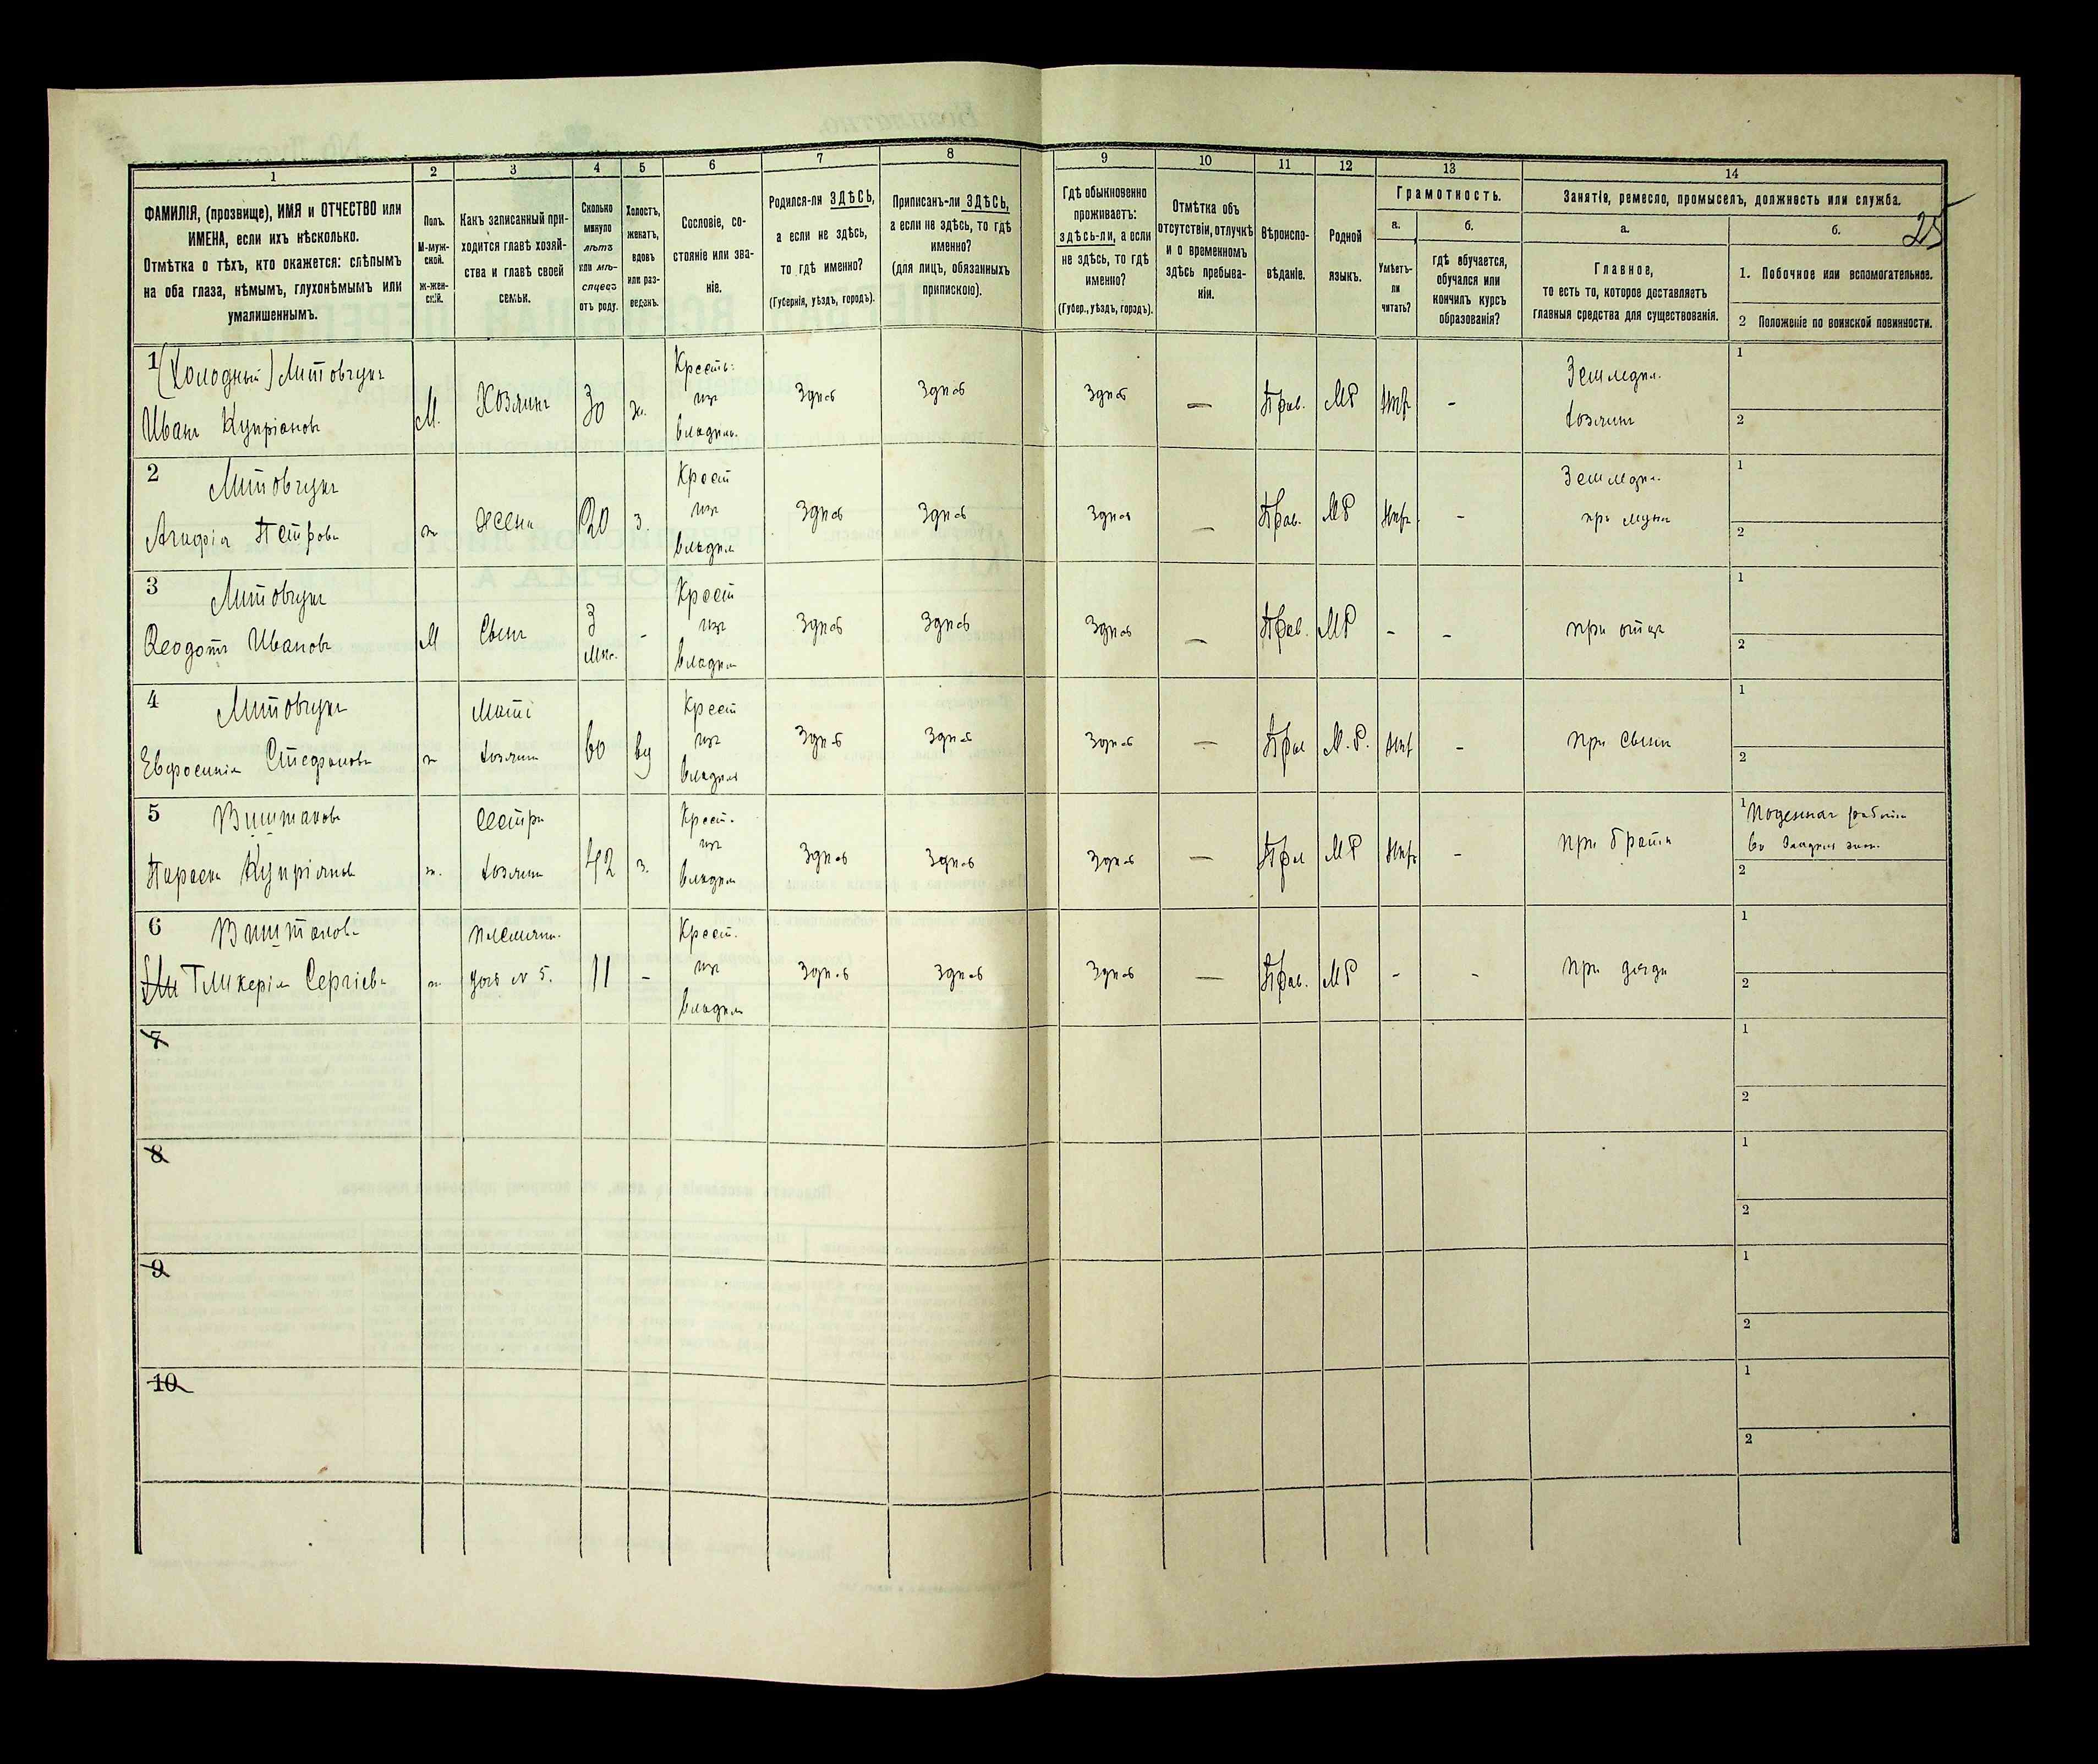 1 2 3 4 5 6 7 8 9 10 11 12 13 14
ФАМИЛІЯ, (прозвище), ИМЯ и ОТЧЕСТВО или
ИМЕНА, если ихъ нѣсколько.
Отмѣтка о тѣхъ, кто окажется: слѣпымъ
на оба глаза, нѣмымъ, глухонѣмымъ или
умалишеннымъ.
Полъ.
М-муж-
ской.
Ж-жен-
скій.
Какъ записанный при-
ходится главѣ хозяй-
ства и главѣ своей
семьи.
Сколько
минуло
лѣтъ
или мѣ-
сяцевъ
отъ роду.
Холостъ,
женатъ,
вдовъ
или раз-
веденъ.
Сословіе, со-
стояніе или зва-
ніе.
Родился-ли ЗДѢСЬ,
а если не здѣсь,
то гдѣ именно?
(Губернія, уѣздъ, городъ).
Приписанъ-ли ЗДѢСЬ,
а если не здѣсь, то гдѣ
именно?
(для лицъ, обязанныхъ
припискою).
Гдѣ обыкновенно
проживаетъ:
здѣсь-ли, а если
не здѣсь, то гдѣ
именно?
(Губер., уѣздъ, городъ).
Отмѣтка объ
отсутствіи, отлучкѣ
и о временномъ
здѣсь пребыва-
ніи.
Вѣроиспо-
вѣданіе.
Родной
языкъ.
Грамотность.
а.
Умѣетъ-
ли
читать?
б.
гдѣ обучается,
обучался или
кончилъ курсъ
образованія?
Занятія, ремесло, промыселъ, должность или служба.
25
а.
Главное,
то есть то, которое доставляетъ
главныя средства для существованія.
б.
1. Побочное или вспомогательное.
2 Положеніе по воинской повинности.
1 (Холодный) Литовчукъ
Иванъ Купріановъ
М.
Хозяинъ
30
ж.
Крестъ.
изъ
владѣл.
Здѣсь
Здѣсь
Здѣсь
—
Прав.
МР
Нѣтъ
-
Земледѣл.
хозяинъ
1
2
2 Литовчукъ
Агафія Петрова
ж
жена
20
з.
Крест
изъ
владѣл
Здѣсь
Здѣсь
Здѣсь
—
Прав.
МР
Нѣтъ
-
Земледѣл.
при мужѣ
1
2
3 Литовчукъ
Ѳеодотъ Ивановъ
М
Сынъ
3
мѣс.
-
Крест
изъ
владѣл
Здѣсь
Здѣсь
Здѣсь
—
Прав.
МР
-
-
при отцѣ
1
2
4 Литовчукъ
Евфросинія Стефанова
ж
Мать
хозяина
60
вд
Крест
изъ
владѣл
Здѣсь
Здѣсь
Здѣсь
—
Прав
М.Р.
Нѣтъ
-
при сынѣ
1
2
5
Параска Купріанова
ж.
Сестра
хозяина
42
з.
Крест.
изъ
владѣл
Здѣсь
Здѣсь
Здѣсь
—
Прав
МР
Нѣтъ
-
при братѣ
1 Поденная
2
6
Гликерія Сергіева
ж.
Племян.
дочь № 5.
11
-
Крест.
изъ
владѣл
Здѣсь
Здѣсь
Здѣсь
—
Прав.
МР
-
-
при дядѣ
1
2
7
1
2
8
1
2
9
1
2
10
1
2